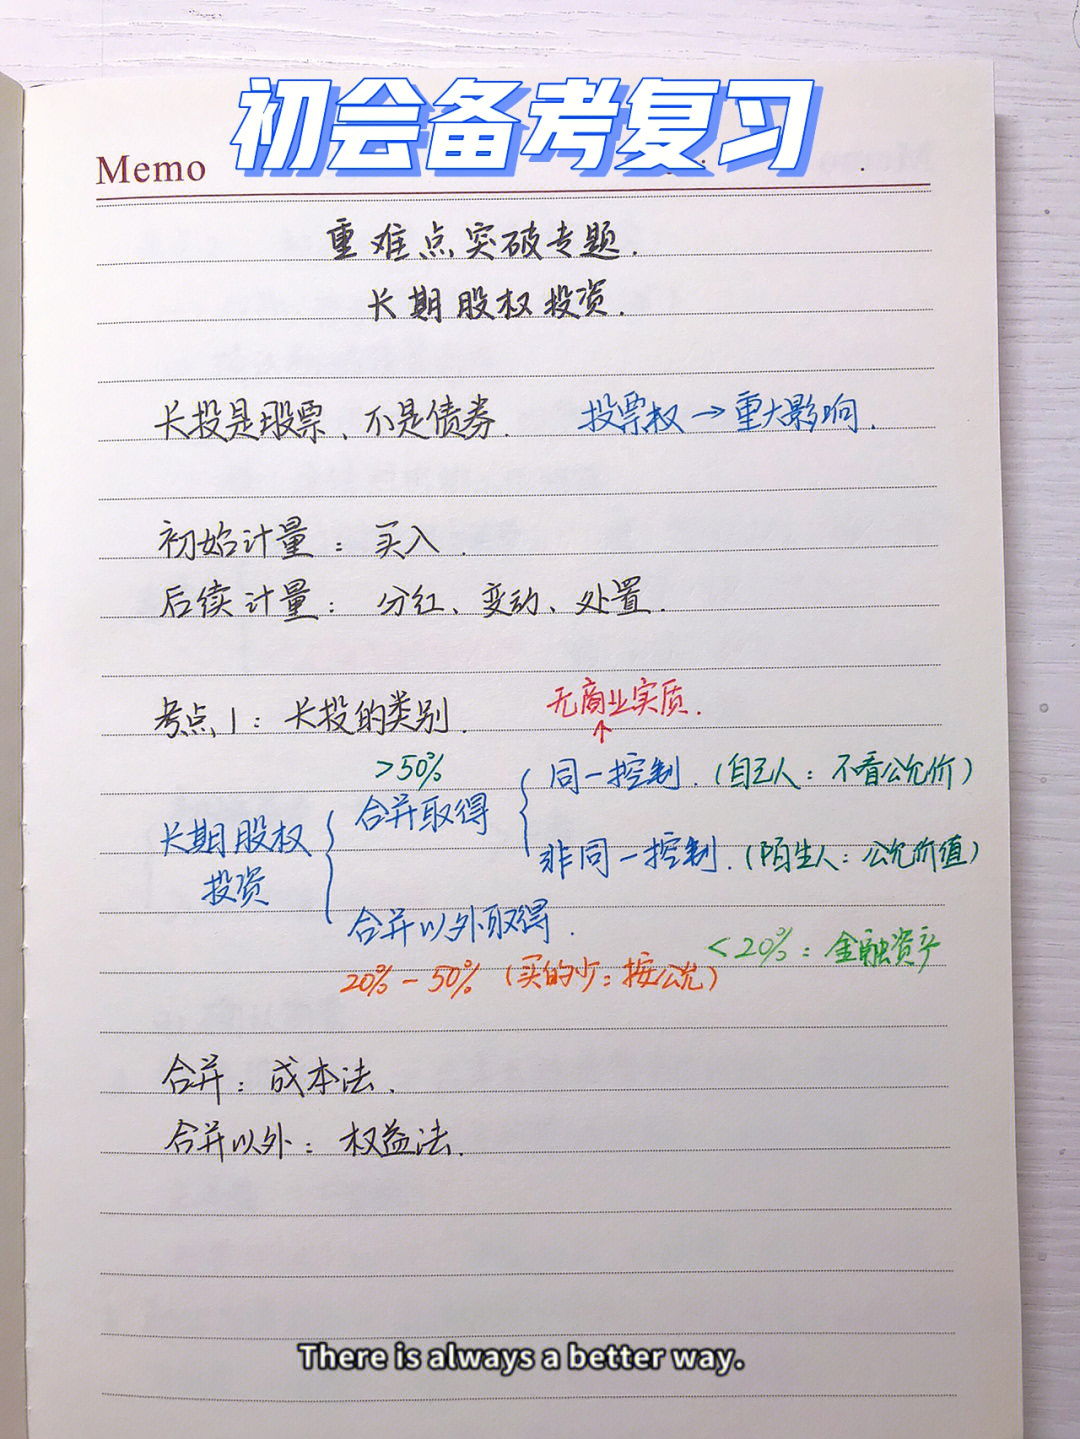 初会备考复习
Memo
重难点突破专题.
长期股权投资.
长投是股票、不是债券. 投票权→重大影响.
初始计量：买入.
后续计量：分红、变动、处置.
考点1：长投的类别. 无商业实质.
↑
>50%
同一控制.（自己人：不看公允价）
合并取得
长期股权投资
非同一控制.（陌生人：公允价值）
合并以外取得.
<20%：金融资产
20%-50%（买的少：按公允）
合并：成本法.
合并以外：权益法.
There is always a better way.